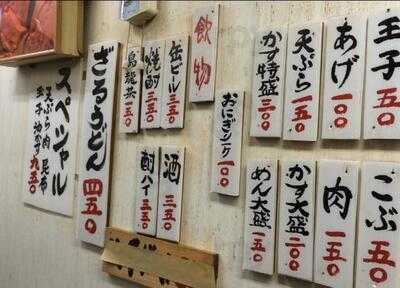 玉子
五〇
あげ
一〇〇
天ぷら
一五〇
かす特盛
三〇〇
飲物
缶ビール
三五〇
焼酎
三五〇
烏龍茶
一五〇
ざるうどん
四五〇
スペシャル
天ぷら 肉 昆布
玉子 油かす 九五〇
こぶ
五〇
肉
一五〇
かす大盛
二〇〇
めん大盛
一五〇
おにぎり一ケ
一〇〇
酒
三五〇
酎ハイ
三五〇